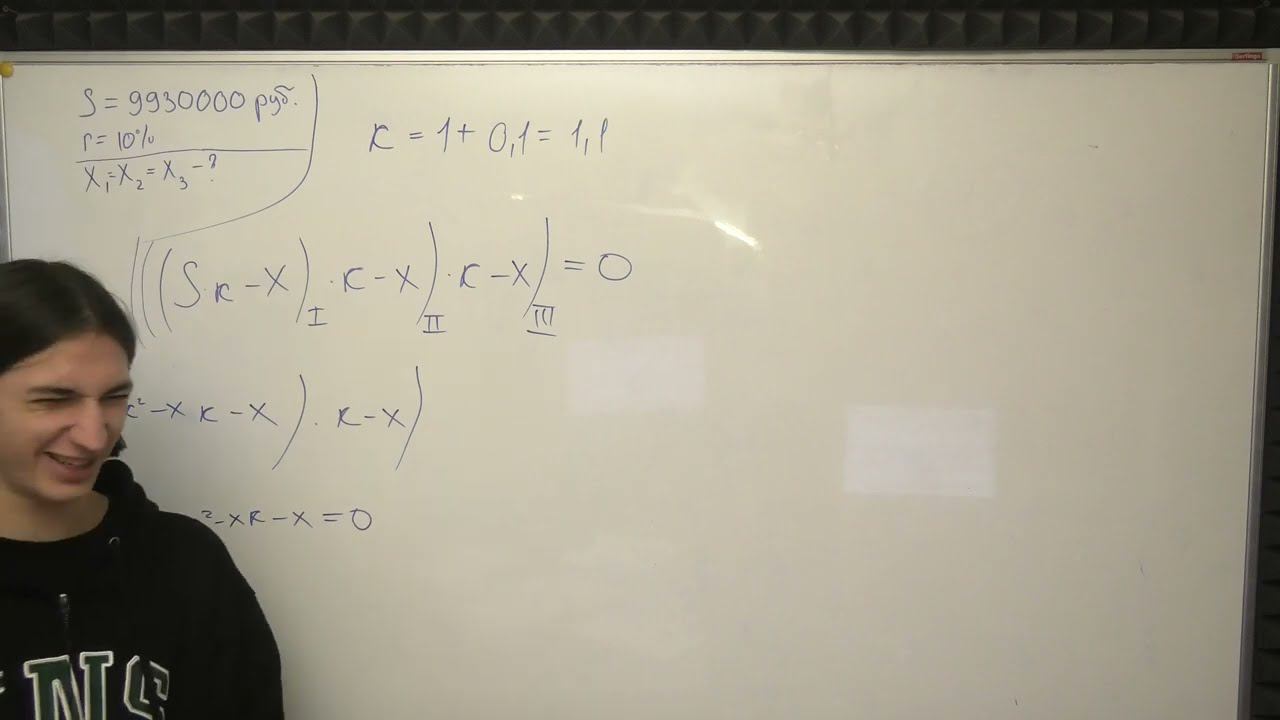 S = 9930000 руб.
r = 10%
X₁ = X₂ = X₃ - ?
K = 1 + 0,1 = 1,1
(((S·K - X)·K - X)·K - X) = 0
I II III
K² - X K - X)·K - X)
² - XK - X = 0
NS